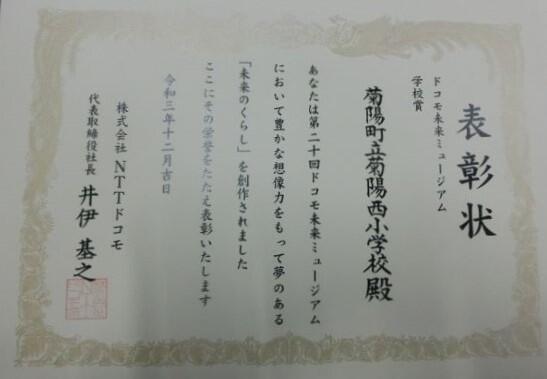 表彰状
ドコモ未来ミュージアム
学校賞
菊陽町立菊陽西小学校殿
あなたは第二十回ドコモ未来ミュージアム
において豊かな想像力をもって夢のある
「未来のくらし」を創作されました
ここにその栄誉をたたえ表彰いたします
令和三年十二月吉日
株式会社NTTドコモ
代表取締役社長 井伊基之